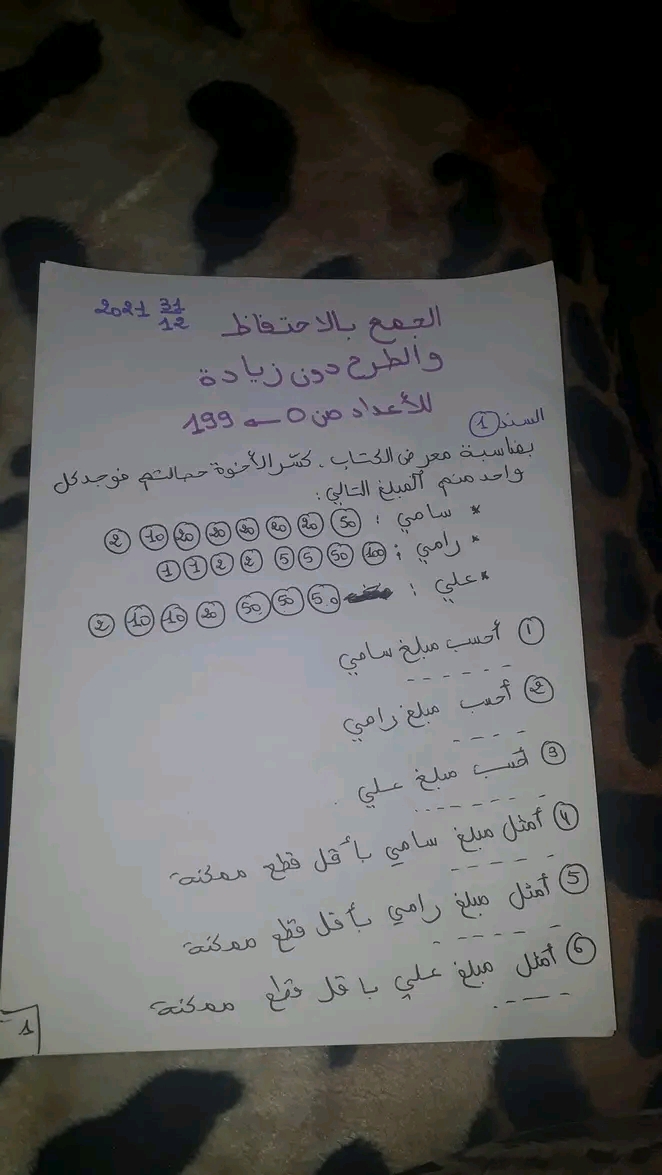 31/12 2021
الجمع بالاحتفاظ
والطرح دون زيادة
للأعداد من 0 ← 199
السند 1
بمناسبة معرض الكتاب، كسّر الأخوة حصالتهم فوجد كل
واحد منهم المبلغ التالي:
* سامي: 50 20 20 20 20 20 10 2
* رامي: 100 50 5 5 2 2 1 1
* علي: 50 50 50 20 10 10 2
1 أحسب مبلغ سامي
------
2 أحسب مبلغ رامي
----
3 أحسب مبلغ علي
-------
4 أمثل مبلغ سامي بأقل قطع ممكنة
-----
5 أمثل مبلغ رامي بأقل قطع ممكنة
------
6 أمثل مبلغ علي باقل قطع ممكنة
----
1